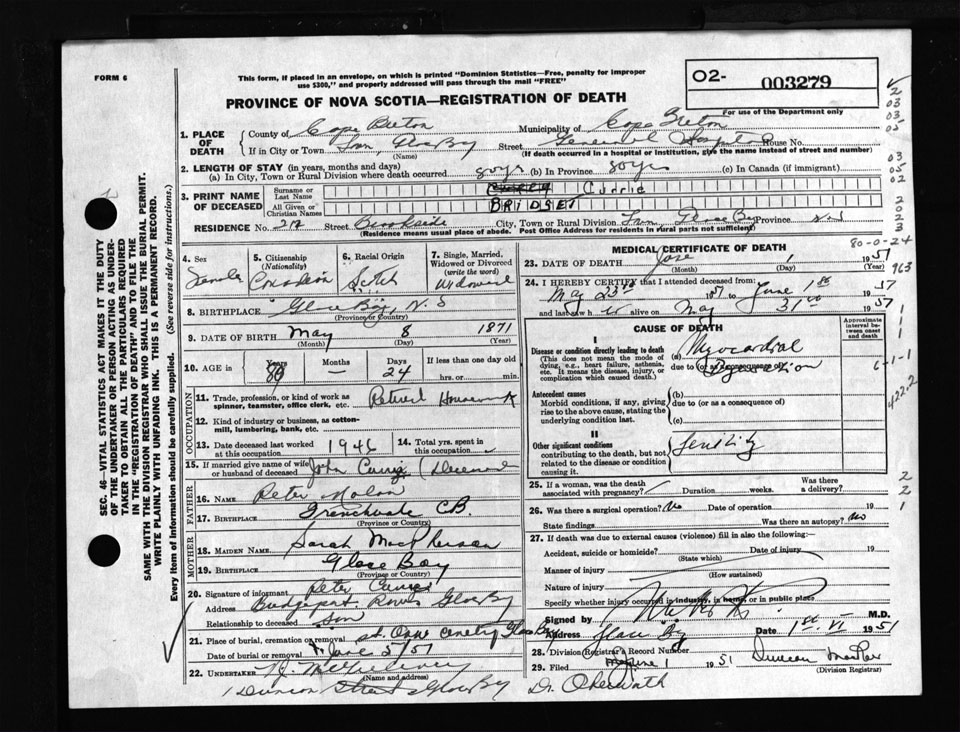 FORM 6
This form, if placed in an envelope, on which is printed "Dominion Statistics—Free, penalty for improper
use $300," and properly addressed will pass through the mail "FREE"
O2- 003279
PROVINCE OF NOVA SCOTIA—REGISTRATION OF DEATH
For use of the Department only
1. PLACE OF DEATH
County of Cape Breton Municipality of Cape Breton
If in City or Town Glace Bay Street General Hospital House No.
(Name) (If death occurred in a hospital or institution, give the name instead of street and number)
2. LENGTH OF STAY (in years, months and days)
(a) In City, Town or Rural Division where death occurred 80 yrs (b) In Province 80 yrs (c) In Canada (if immigrant)
3. PRINT NAME OF DECEASED
Surname or Last Name Currie
All Given or Christian Names BRIDGET
RESIDENCE No. Street Brookside City, Town or Rural Division Glace Bay Province N S
(Residence means usual place of abode. Post Office Address for residents in rural parts not sufficient)
4. SEX Female
5. Citizenship (Nationality) Canadian
6. Racial Origin Scotch
7. Single, Married, Widowed or Divorced (write the word) Widowed
8. BIRTHPLACE Glace Bay, N. S
(Province or Country)
9. DATE OF BIRTH May 8 1871
(Month) (Day) (Year)
10. AGE in Years 80 Months — Days 24 If less than one day old hrs. or min.
OCCUPATION
11. Trade, profession, or kind of work as spinner, teamster, office clerk, etc. Retired Housework
12. Kind of industry or business, as cotton-mill, lumbering, bank, etc.
13. Date deceased last worked at this occupation 1946
14. Total yrs. spent in this occupation
15. If married give name of wife or husband of deceased John Currie (Deceased
FATHER
16. NAME Peter Nolan
17. BIRTHPLACE Frenchvale CB.
(Province or Country)
MOTHER
18. MAIDEN NAME Sarah MacPherson
19. BIRTHPLACE Glace Bay
(Province or Country)
20. Signature of informant Peter Currie
Address Bridgeport Rows Glace Bay
Relationship to deceased Son
21. Place of burial, cremation or removal St. Anns Cemetery Glace Bay
Date of burial or removal June 5/51
22. UNDERTAKER
(Name and address)
Street Glace Bay
MEDICAL CERTIFICATE OF DEATH
80-0-24
23. DATE OF DEATH June 1 1951
(Month) (Day) (Year)
963
24. I HEREBY CERTIFY that I attended deceased from:
May 23rd 1951 to June 1st 1951
and last saw her alive on May 31st 1951
CAUSE OF DEATH
Approximate interval between onset and death
I
Disease or condition directly leading to death
(This does not mean the mode of dying, e.g., heart failure, asthenia, etc. It means the disease, injury, or complication which caused death.)
(a) Myocardial
due to (or as a consequence of)
6-1-1
Antecedent causes
Morbid conditions, if any, giving rise to the above cause, stating the underlying condition last
(b)
due to (or as a consequence of)
(c)
422-2
II
Other significant conditions
contributing to the death, but not related to the disease or condition causing it.
Senility
25. If a woman, was the death associated with pregnancy? Duration weeks. Was there a delivery?
26. Was there a surgical operation? No Date of operation 19
State findings Was there an autopsy? No
27. If death was due to external causes (violence) fill in also the following:
Accident, suicide or homicide? Date of injury 19
(State which)
Manner of injury
(How sustained)
Nature of injury
Specify whether injury occurred in industry, in home or in public place
Signed by M.D.
Address Glace Bay Date 1st VI 1951
28. Division (Registrar's) Record Number
29. Filed June 1 1951 Duncan
(Division Registrar)
Dr.
SEC. 46—VITAL STATISTICS ACT MAKES IT THE DUTY
OF THE UNDERTAKER OR PERSON ACTING AS UNDER-
TAKER TO OBTAIN ALL THE PARTICULARS REQUIRED
IN THE "REGISTRATION OF DEATH" AND TO FILE THE
SAME WITH THE DIVISION REGISTRAR WHO SHALL ISSUE THE BURIAL PERMIT.
WRITE PLAINLY WITH UNFADING INK. THIS IS A PERMANENT RECORD.
Every item of Information should be carefully supplied. (See reverse side for instructions.)